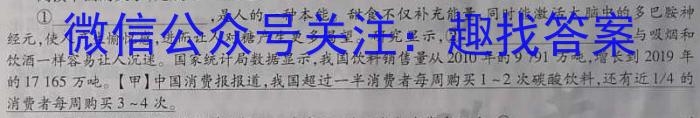 ① 是人的一种本能。甜食不仅补充能量,同时能激活大脑中的多巴胺神
经元,使人 愉悦感,进而让人对糖产生更多渴望。研究显示, 与吸烟和
饮酒一样容易让人沉迷。国家统计局数据显示,我国饮料销售量从2010年的9 91万吨,增长到2019年
的17165万吨。【甲】中国消费报报道,我国超过一半消费者每周购买1~2次碳酸饮料,还有近1/4的
消费者每周购买3~4次。
微信公众号关注:趣找答案